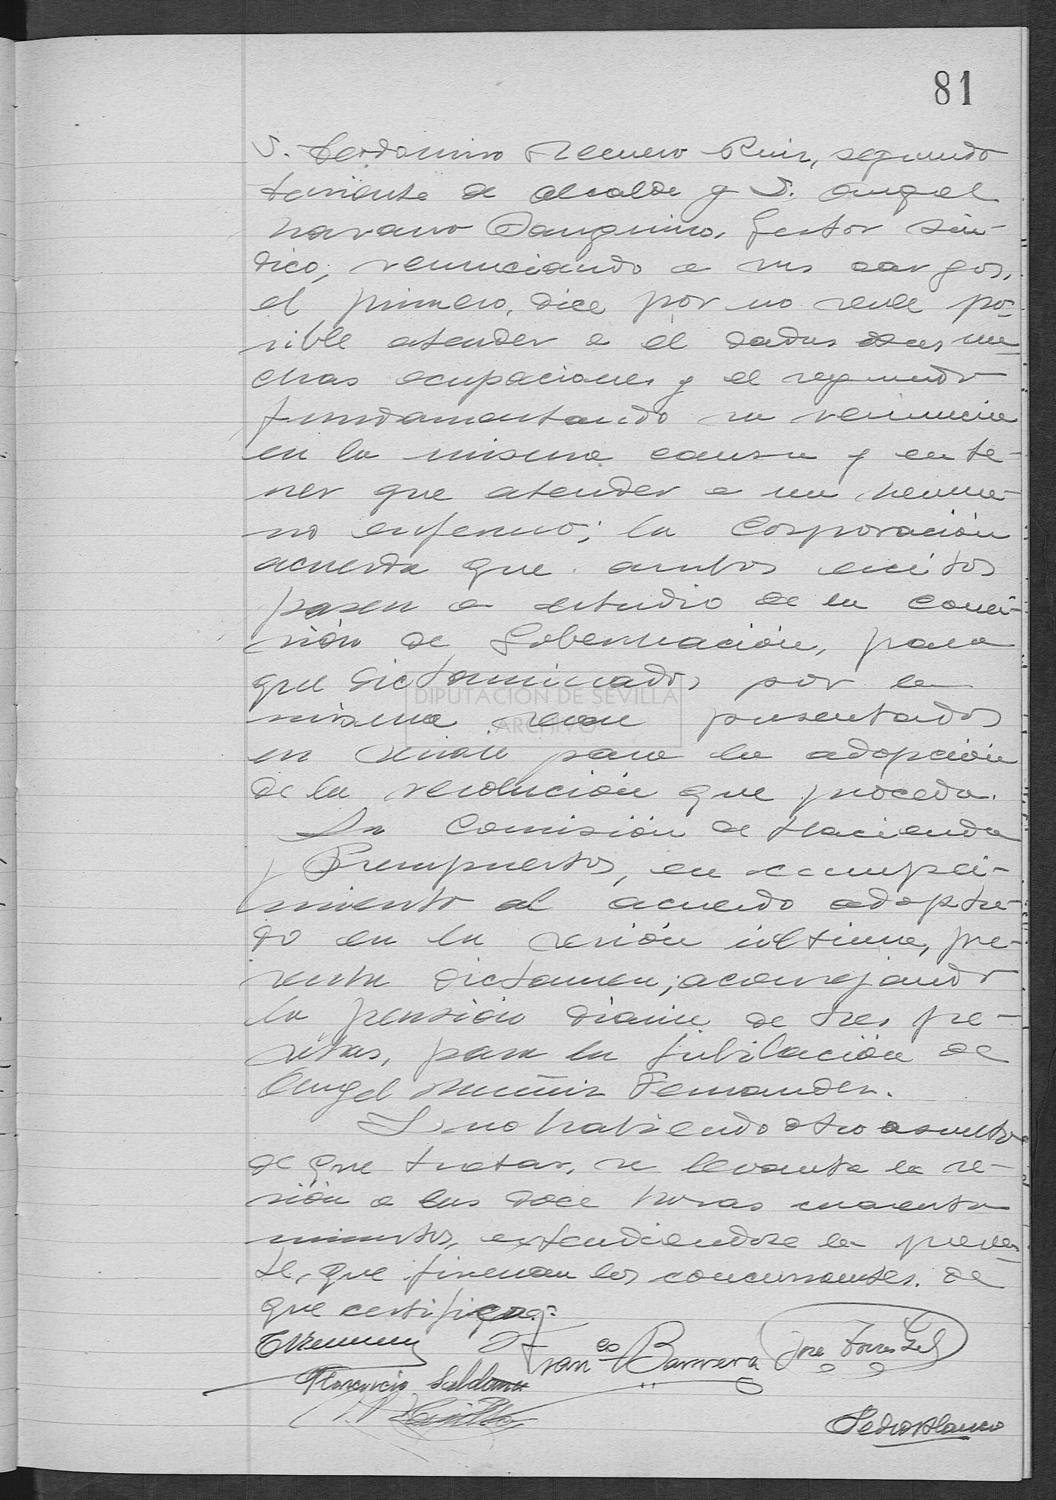 81
D. Gerdonimo Recuero Ruiz, segundo
teniente de alcalde y D. Angel
Navarro Sanguino, Gestor Sín-
dico, renunciando a sus cargos,
el primero, dice por no serle po-
sible atender a él dadas sus mu-
chas ocupaciones y el segundo
fundamentando su renuncia
en la misma causa y en te-
ner que atender a un herma-
no enfermo; la Corporación
acuerda que ambos escritos
pasen a estudio de la Comi-
sión de Gobernación, para
que dictaminados por la
misma sean presentados
en sesión para la adopción
de la resolución que proceda.
DIPUTACIÓN DE SEVILLA
ARCHIVO
La Comisión de Hacienda
y Presupuestos, en cumpli-
miento al acuerdo adopta-
do en la sesión última, pre-
senta dictamen, aconsejando
la pensión diaria de tres pe-
setas, para la jubilación de
Angel Muñiz Fernandez.
Y no habiendo otro asunto
de que tratar, se levanta la se-
sión a las doce horas cuarenta
minutos, extendiendose la presen-
te, que firman los concurrentes. de
que certifico.=
Franco Barrera
Jose Torres Gil
Florencio Saldaña
Pedro Blanco